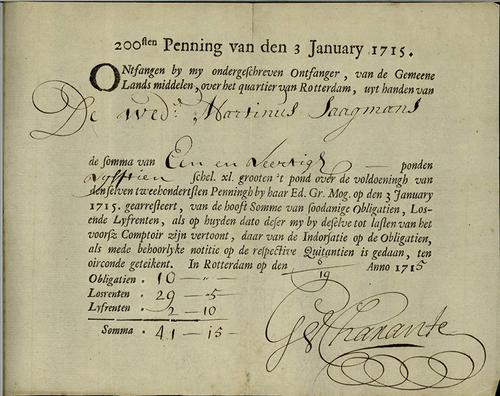 200sten Penning van den 3 January 1715.
ONtfangen by my ondergeschreven Ontfanger, van de Gemeene
Lands middelen, over het quartier van Rotterdam, uyt handen van
De wed: Martinus Saagmans
de somma van Een en Veertigh ponden
Vyfftien schel. xl. grooten 't pond over de voldoeningh van
den selven tweehondertsten Penningh by haar Ed. Gr. Mog. op den 3 January
1715. gearresteert, van de hooft Somme van soodanige Obligatien, Los-
ende Lyfrenten, als op huyden dato deser my by deselve tot lasten van het
voorsz Comptoir zijn vertoont, daar van de Indorsatie op de Obligatien,
als mede behoorlyke notitie op de respective Quitantien is gedaan, ten
oirconde geteikent. In Rotterdam op den 6/19 Anno 1715
Obligatien . 10 — " —
Losrenten . 29 — 5
Lyfrenten . 2 — 10
Somma . 41 — 15 —
Charante